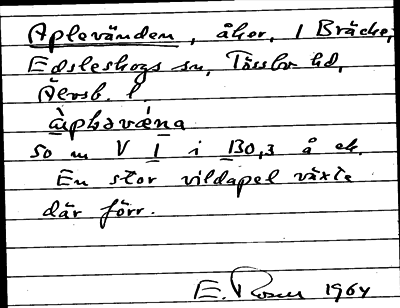 Aplevänden, åker, i Bräcke,
Edsleskogs sn, Tössbo hd,
Älvsb. l
àpləvǽna
50 m V I i BO,3 å ek.
En stor vildapel växte
där förr.
E. Rosen 1964